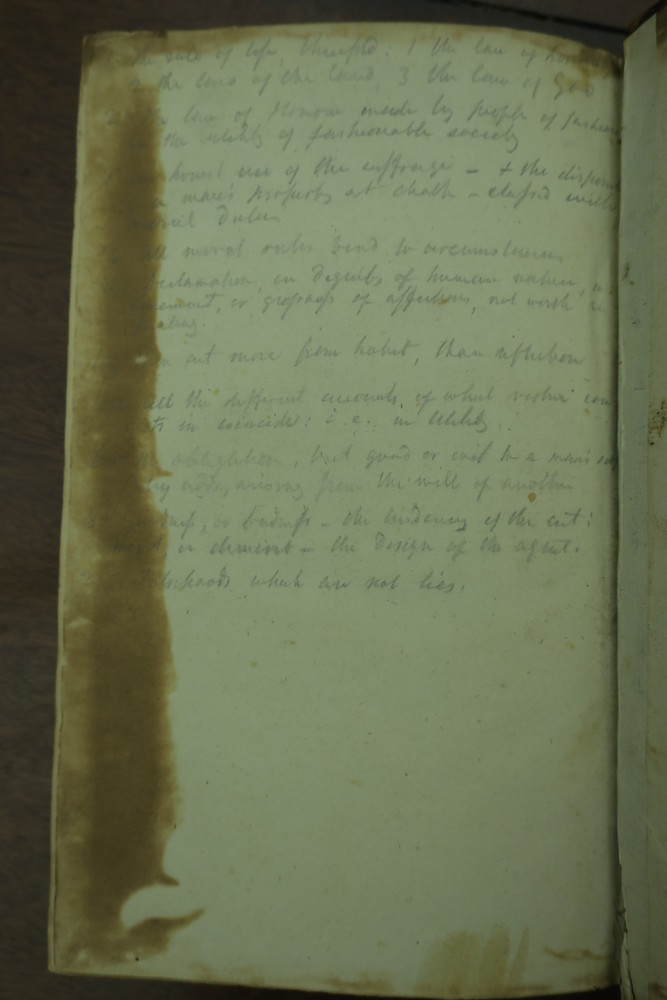 the rule of life, threefold: 1 the law of hon
2 the laws of the land, 3 the law of God
law of Honour made by people of fashion
the utility of fashionable society
honest use of the suffrage - & the dispos
man's property at death - classed with
moral Duties
all moral rules bend to circumstances
declamation, on dignity of human nature,
or grossness of affections, not worth re
act more from habit, than reflection
all the different accounts of what virtue con
ts in coincide: i.e. in utility.
obligation, but good or evil to a man's
arising from the will of another
or badness - the tendency of the act:
merit or demerit - the Design of the agent.
falsehoods which are not lies.